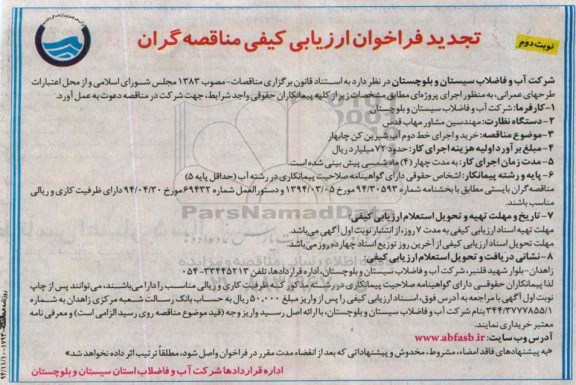 تجدید فراخوان ارزیابی کیفی مناقصه گران
نوبت دوم
شرکت آب و فاضلاب سیستان و بلوچستان در نظر دارد به استناد قانون برگزاری مناقصات- مصوب ۱۳۸۳ مجلس شورای اسلامی و از محل اعتبارات
طرحهای عمرانی، به منظور اجرای پروژه‌ای مطابق مشخصات زیر از کلیه پیمانکاران حقوقی واجد شرایط، جهت شرکت در مناقصه دعوت به عمل آورد.
۱- کارفرما: شرکت آب و فاضلاب سیستان و بلوچستان
۲- دستگاه نظارت: مهندسین مشاور مهاب قدس
۳- موضوع مناقصه: خرید و اجرای خط دوم آب شیرین کن چابهار
۴- مبلغ برآورد اولیه هزینه اجرای کار: حدود ۷۲ میلیارد ریال
۵- مدت زمان اجرای کار: به مدت چهار (۴) ماه شمسی پیش بینی شده است.
۶- پایه و رشته پیمانکار: اشخاص حقوقی دارای گواهینامه صلاحیت پیمانکاری در رشته آب (حداقل پایه ۵)
مناقصه گران بایستی مطابق با بخشنامه شماره ۹۴/۳۰۵۹۳ مورخ ۱۳۹۴/۰۳/۰۵ و دستورالعمل شماره ۶۹۴۳۲ مورخ ۹۴/۰۴/۳۰ دارای ظرفیت کاری و ریالی
مناسب باشند.
۷- تاریخ و مهلت تهیه و تحویل استعلام ارزیابی کیفی:
مهلت تهیه اسناد ارزیابی کیفی به مدت ۷ روز، از انتشار نوبت اول آگهی می‌باشد.
مهلت تحویل اسناد ارزیابی کیفی از آخرین روز توزیع اسناد چهارده روز می‌باشد.
۸- نشانی دریافت و تحویل استعلام ارزیابی کیفی:
زاهدان- بلوار شهید قلنبر، شرکت آب و فاضلاب سیستان و بلوچستان، اداره قرارداد ها، تلفن ۳۳۴۴۵۲۱۳-۰۵۴
لذا پیمانکاران حقوقی دارای گواهینامه صلاحیت پیمانکاری در رشته مذکور که ظرفیت کاری و ریالی مناسب را دارا می‌باشند، می‌توانند پس از چاپ
نوبت اول آگهی با مراجعه به آدرس فوق، اسناد ارزیابی کیفی را پس از واریز مبلغ ۵۰،۰۰۰ ریال به حساب بانک رسالت شعبه مرکزی زاهدان به شماره
۳۴۴/۳۷۷۷۸۵۵/۱ بنام شرکت آب و فاضلاب سیستان و بلوچستان، با ارائه اصل رسید واریز وجه (قید موضوع مناقصه روی رسید الزامی است) و معرفی نامه
معتبر خریداری نمایند.
آدرس وب سایت: www.abfasb.ir
«به پیشنهادهای فاقد امضاء، مشروط، مخدوش و پیشنهاداتی که بعد از انقضاء مدت مقرر در فراخوان واصل شود، مطلقاً ترتیب اثر داده نخواهد شد»
اداره قراردادها شرکت آب و فاضلاب استان سیستان و بلوچستان
ParsNamadData